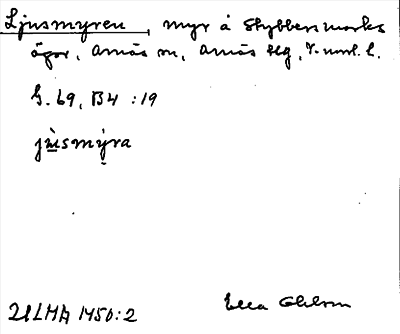 Ljusmyren, myr å Stybbersmarks
ägor, Arnäs sn, Arnäs tlg, V.-nrrl. l.
G. 69, B4 :19
jùsmýra
ULMA 1450:2
Ella Ohlson